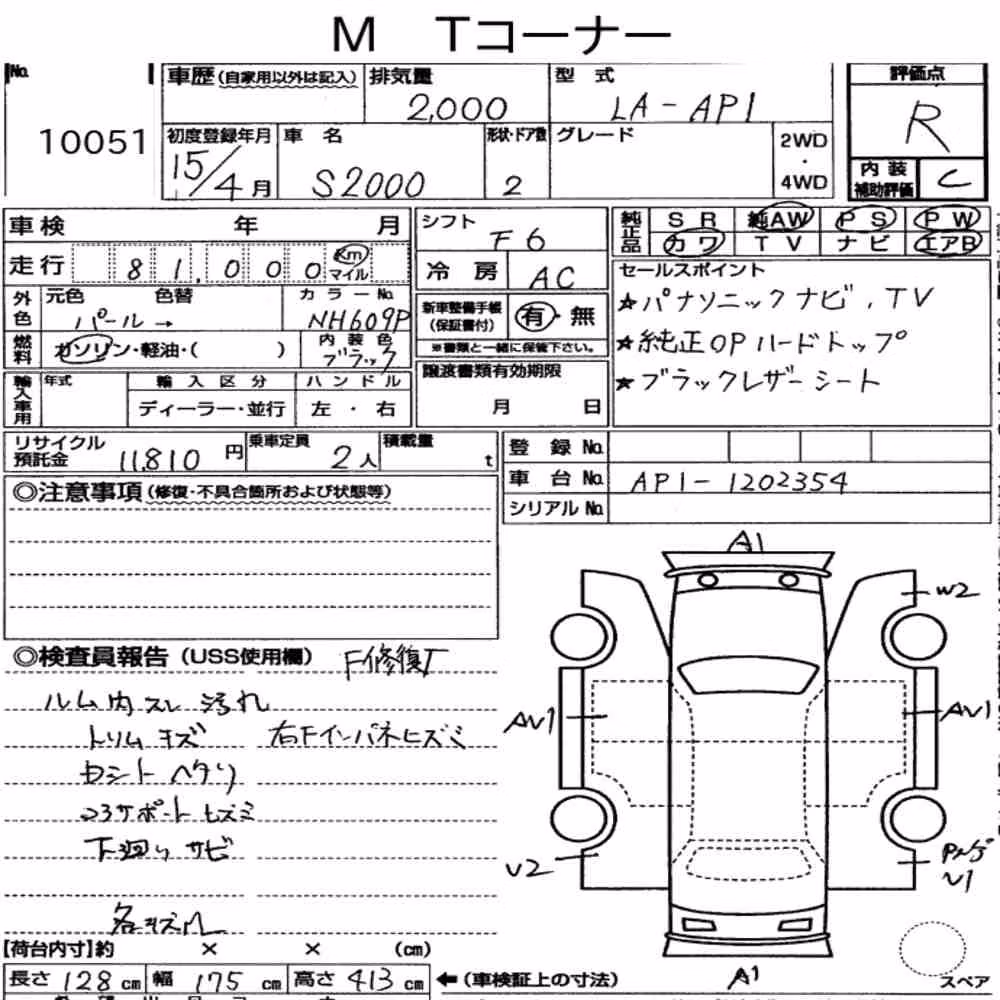 M Tコーナー
No. 10051
車歴(自家用以外は記入) 排気量 2,000 型式 LA-AP1 評価点 R
初度登録年月 15/4月 車名 S2000 形状・ドア数 2 グレード 2WD・4WD 内装補助評価 C
車検 年 月 シフト F6 純正品 SR 純AW PS PW
カワ TV ナビ エアB
走行 81,000 Km マイル 冷房 AC
セールスポイント
★パナソニックナビ、TV
★純正OPハードトップ
★ブラックレザーシート
外色 元色 色替 パール→ カラーNo. NH609P
新車整備手帳(保証書付) 有・無
※書類と一緒に保管下さい。
燃料 ガソリン・軽油・( ) 内装色 ブラック
輸入車用 年式 輸入区分 ハンドル
ディーラー・並行 左・右
譲渡書類有効期限
月 日
リサイクル預託金 11,810円 乗車定員 2人 積載量 t
登録No.
車台No. AP1-1202354
シリアルNo.
◎注意事項(修復・不具合箇所および状態等)
◎検査員報告(USS使用欄) F修復歴
ルーム内スレ 汚れ
トリムキズ 右Fインパネヒズミ
シートヘタリ
コアサポートヒズミ
下廻りサビ
各キズ
A1
W2
AV1
AV1
V2
V1
A1
スペア
【荷台内寸】約 × × (cm)
長さ 128cm 幅 175cm 高さ 413cm ←(車検証上の寸法)